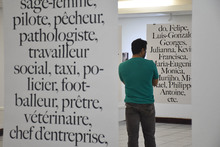 sage-femme,
pilote, pêcheur,
pathologiste,
travailleur
social, taxi, po-
licier, foot-
balleur, prêtre,
vétérinaire,
chef d'entreprise,
do, Felipe,
Luis-Gonzalo
Georges,
Julianna,
Kevi
Francisca,
Maria-Eugeni
Monica,
Murijho, Mi
Philipp
Antoine,
etc.